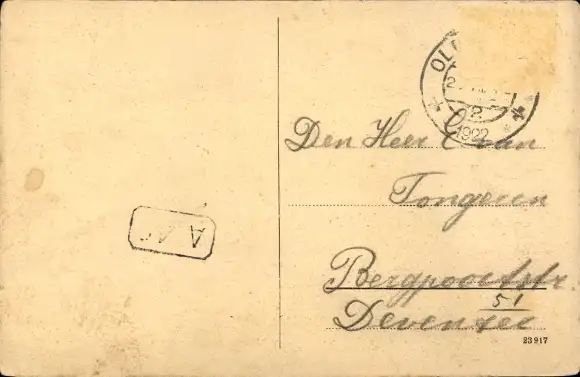 OL
2
1922
Den Heer C van
Tongeren
Bergpoortstr.
51
Deventer
23917